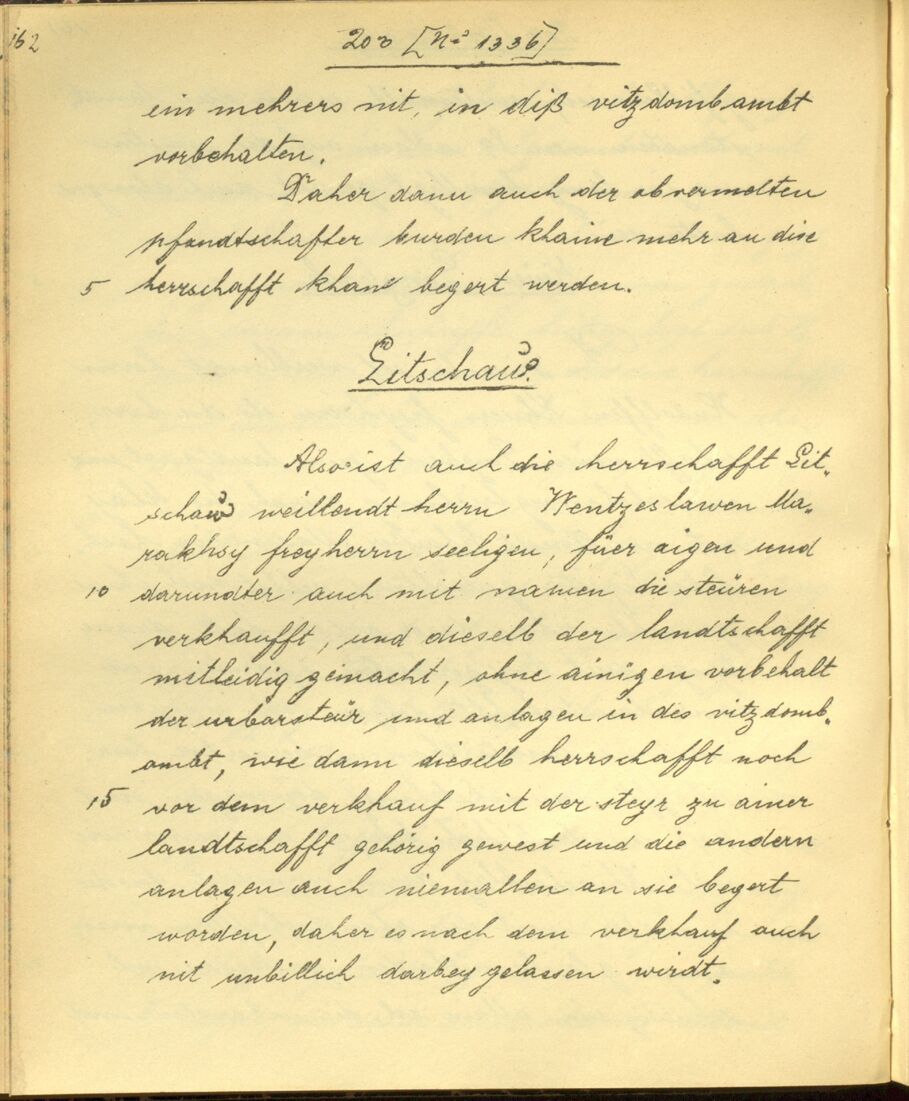 162
203 [No 1336]
ein mehrers nit, in diß vitzdombambt
vorbehalten.
Daher dann auch der obvermelten
pfandtschafter burden khaine mehr an dise
5 herrschafft khan begert werden.
Litschaw.
Also ist auch die herrschafft Lit„
schaw weillendt herrn Wentzeslawen Ma„
rakhsy freyherrn seeligen, füer aigen und
10 darundter auch mit namen die steüren
verkhaufft, und dieselb der landtschafft
mitleidig gemacht, ohne ainigen vorbehalt
der urbarsteür und anlagen in des vitzdomb„
ambt, wie dann dieselb herrschafft noch
15 vor dem verkhauf mit der steyr zu ainer
landtschafft gehörig gewest und die andern
anlagen auch niemallen an sie begert
worden, daher es nach dem verkhauf auch
nit unbillich darbey gelassen wirdt.